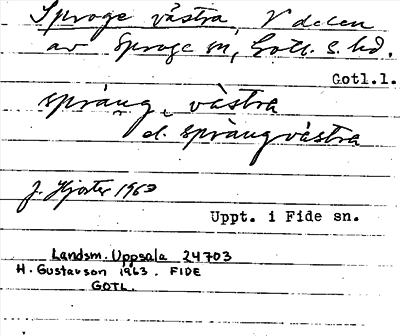 Sproge västra, V delen
av Sproge sn, Gotl. S. hd.
Gotl.l.
språng västra
el. språngvästra
J. Hjorter 1963
Uppt. i Fide sn.
Landsm. Uppsala 24703
H. Gustavson 1963. FIDE
GOTL.